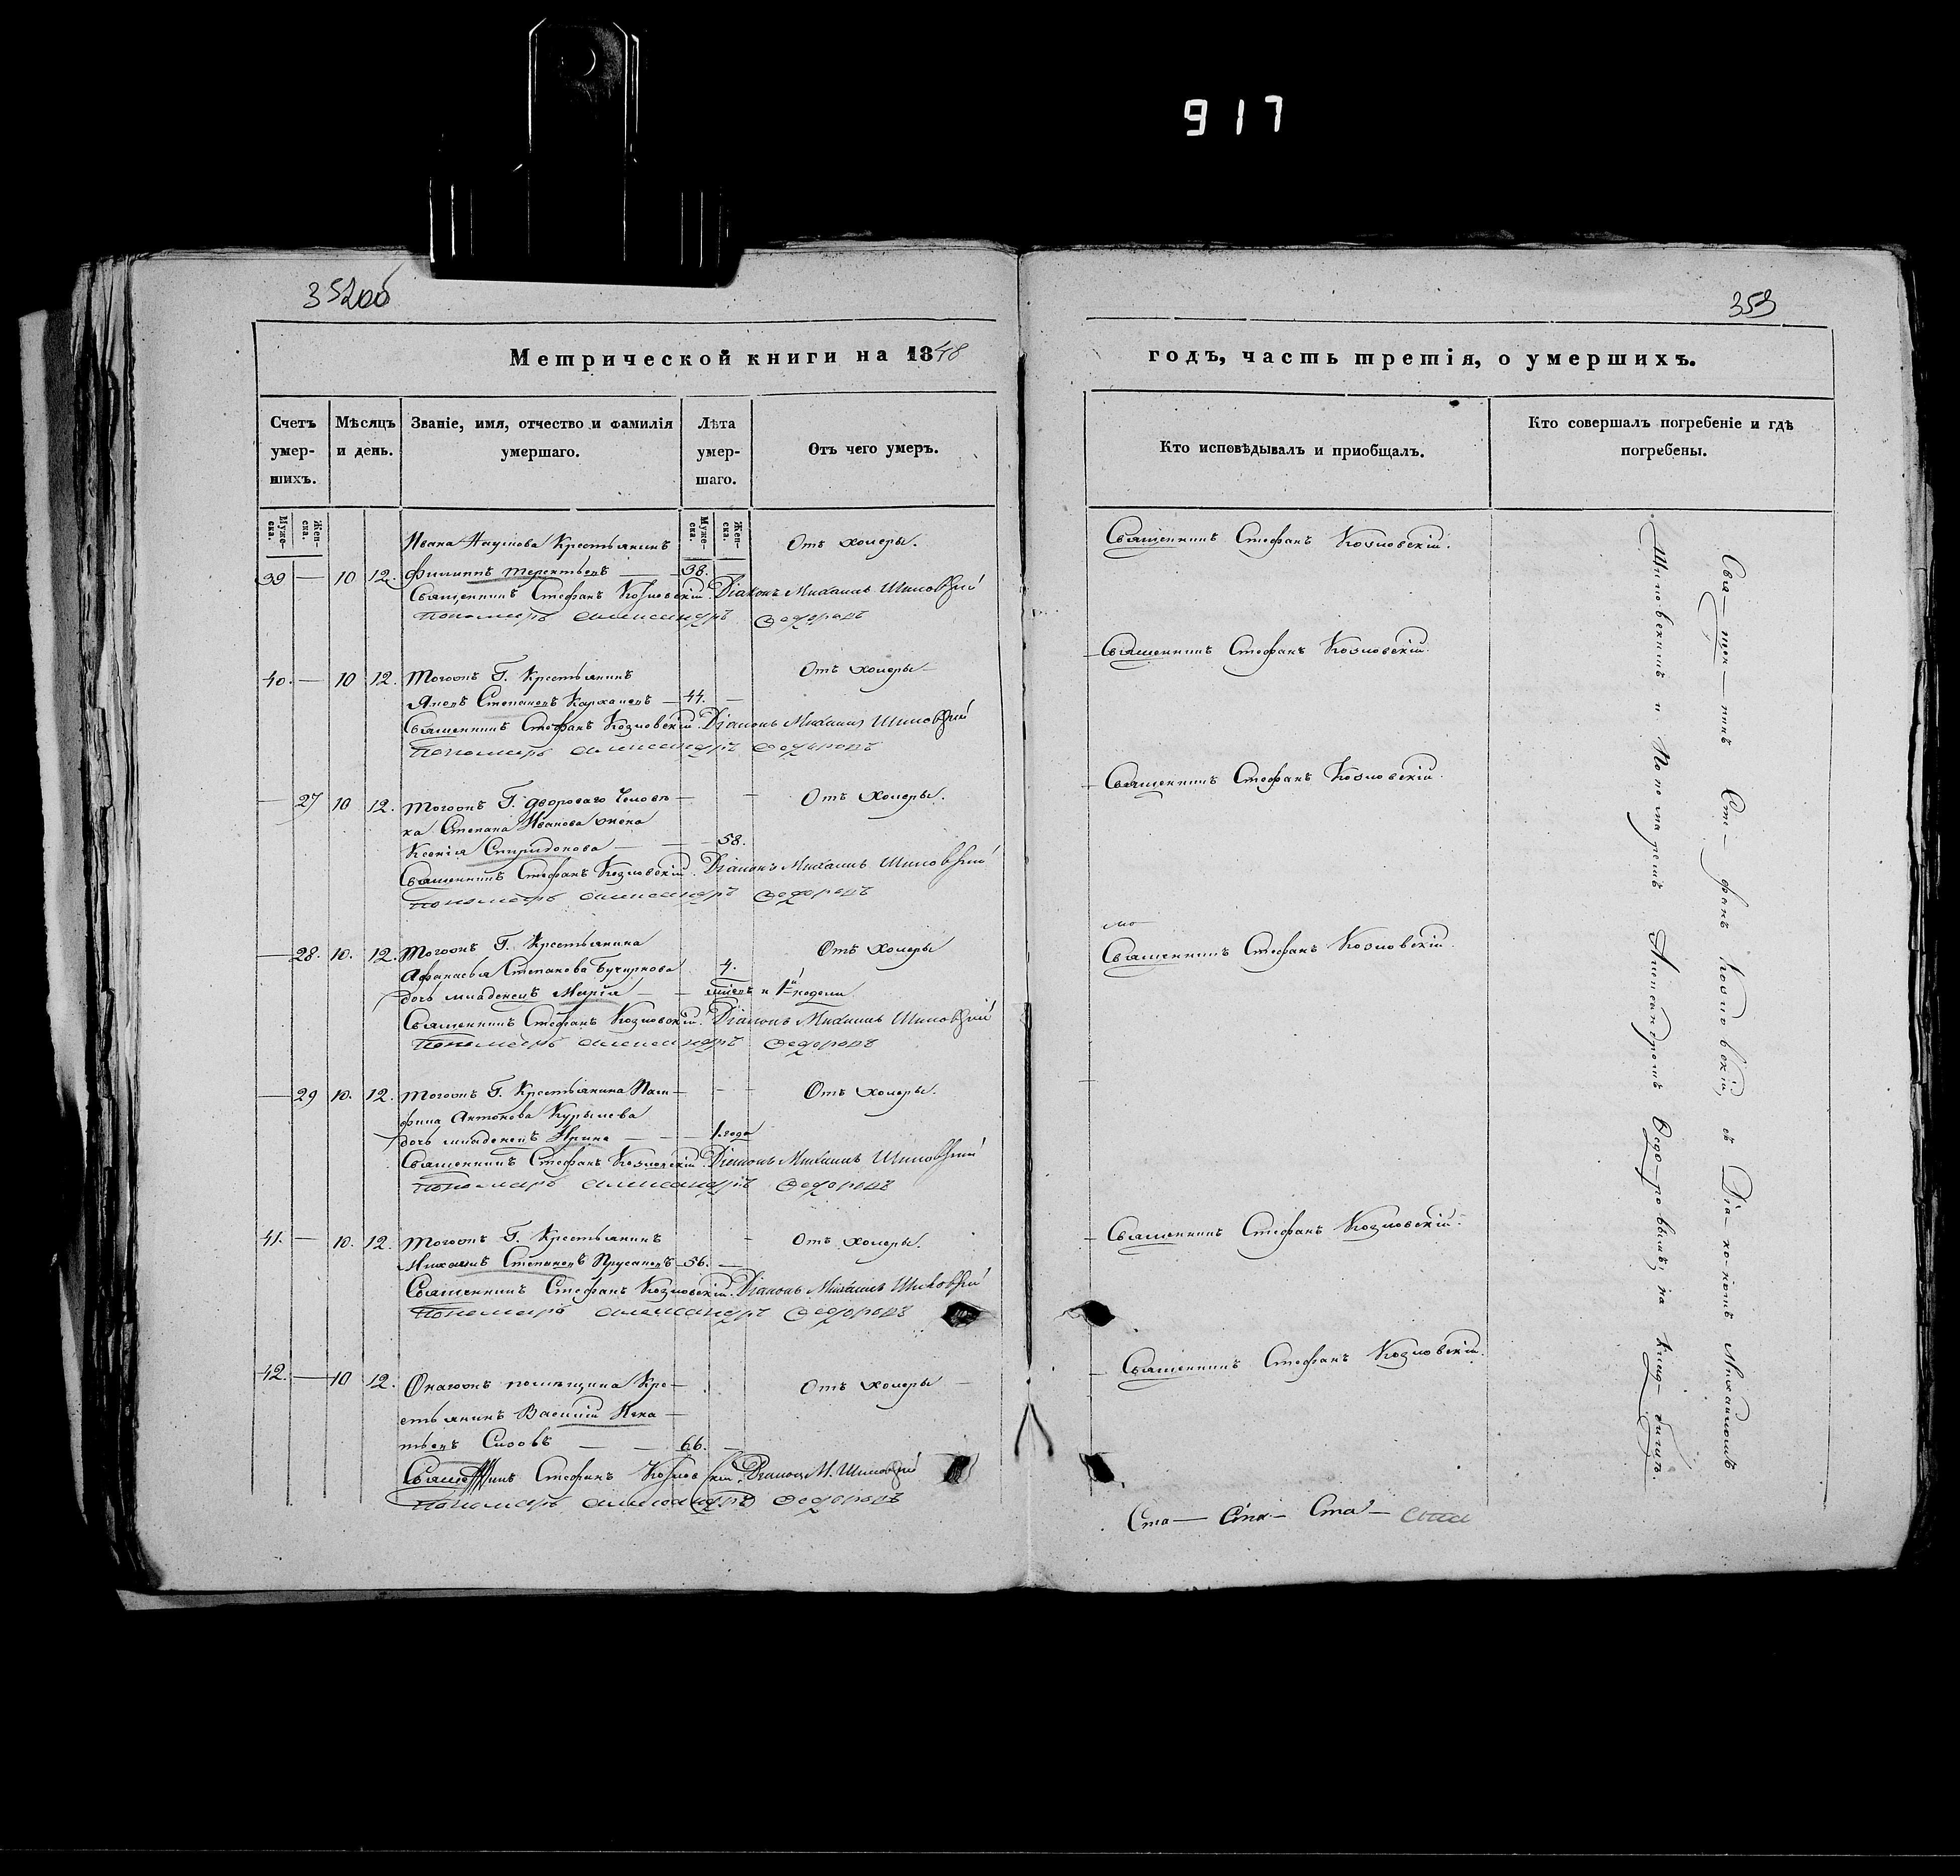 917
352об
353
Метрической книги на 1848
годъ, часть третія, о умершихъ.
Счетъ умер-шихъ.
Мѣсяцъ и день.
Званіе, имя, отчество и фамилія умершаго.
Лѣта умер-шаго.
Отъ чего умеръ.
Кто исповѣдывалъ и пріобщалъ.
Кто совершалъ погребеніе и гдѣ погребены.
Муже-ска.
Жен-ска.
Муже-ска.
Жен-ска.
Ивана Наумова Крестьянинъ
Отъ холеры.
Священникъ Стефанъ Козловскій.
39 — 10 12. Филиппъ Терентьевъ — 38. —
Священникъ Стефанъ Козловскій. Діаконъ Михаилъ Шиловскій
Пономарь Александръ Федоровъ
40. — 10 12. Тогожъ Г. Крестьянинъ
Отъ холеры —
Священникъ Стефанъ Козловскій.
Степановъ — 44. —
Священникъ Стефанъ Козловскій. Діаконъ Михаилъ Шиловскій
Пономарь Александръ Федоровъ
— 27 10 12. Тогожъ Г. двороваго Человѣ—
— Отъ холеры.
Священникъ Стефанъ Козловскій.
ка Степана Иванова жена
Ксенія Спиридонова — — 58.
Священникъ Стефанъ Козловскій. Діаконъ Михаилъ Шиловскій
Пономарь Александръ Федоровъ
— 28. 10. 12. Тогожъ Г. Крестьянина
Отъ холеры
Священникъ Стефанъ Козловскій.
Афанасья Степанова 4.
дочь младенецъ Марія — — мѣсяц. и 1й недели
Священникъ Стефанъ Козловскій. Діаконъ Михаилъ Шиловскій
Пономарь Александръ Федоровъ
— 29 10. 12. Тогожъ Г. Крестьянина Пам—
— Отъ холеры.
фила Антонова Курылева
дочь младенецъ Ирина — — 1. года
Священникъ Стефанъ Козловскій. Діаконъ Михаилъ Шиловскій
Пономарь Александръ Федоровъ
41. — 10. 12. Тогожъ Г. Крестьянинъ
— Отъ холеры.
Священникъ Стефанъ Козловскій.
Михаилъ Степановъ Прусаковъ 56. —
Священникъ Стефанъ Козловскій. Діаконъ Михаилъ Шиловскій
Пономарь Александръ Федоровъ
42. — 10 12. Онагожъ помѣщика Кре—
Отъ холеры —
Священникъ Стефанъ Козловскій.
стьянинъ Василій Игна—
тьевъ — — 66. —
Священникъ Стефанъ Козловскій. Діаконъ М. Шиловскій
Пономарь Александръ Федоровъ
Ста— Ста— Ста—
Свя—щен—никъ Сте—фанъ Козловскій, съ Діа—кономъ Михаиломъ
Шиловскимъ и Пономаремъ Александромъ Федо—ровымъ, на Клад—бищѣ.